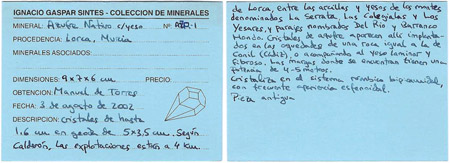 IGNACIO GASPAR SINTES - COLECCION DE MINERALES
MINERAL: Azufre Nativo c/yeso Nº
PROCEDENCIA: Lorca, Murcia
MINERALES ASOCIADOS:
DIMENSIONES: 9x7x6 cm PRECIO:
OBTENCION: Manuel de Torres
FECHA: 3 de agosto de 2002
DESCRIPCION: cristales de hasta
1.6 cm en geoda de 5x3,5cm. Según
Calderón, las explotaciones están a 4 km
de Lorca, entre las arcillas y yesos de los montes
denominados La Serrata, Los Colegiales y Los
Yesares, y parajes nombrados del Río y Barranco
Hondo. Cristales de azufre aparecen allí implanta-
dos en las oquedades de una roca igual a la de
Conil (Cádiz), o acompañando al yeso laminar y
fibroso. Las margas donde se encuentran tienen una
potencia de 4-5 metros.
Cristaliza en el sistema rómbico bipiramidal,
con frecuente apariencia esfenoidal.
Pieza antigua